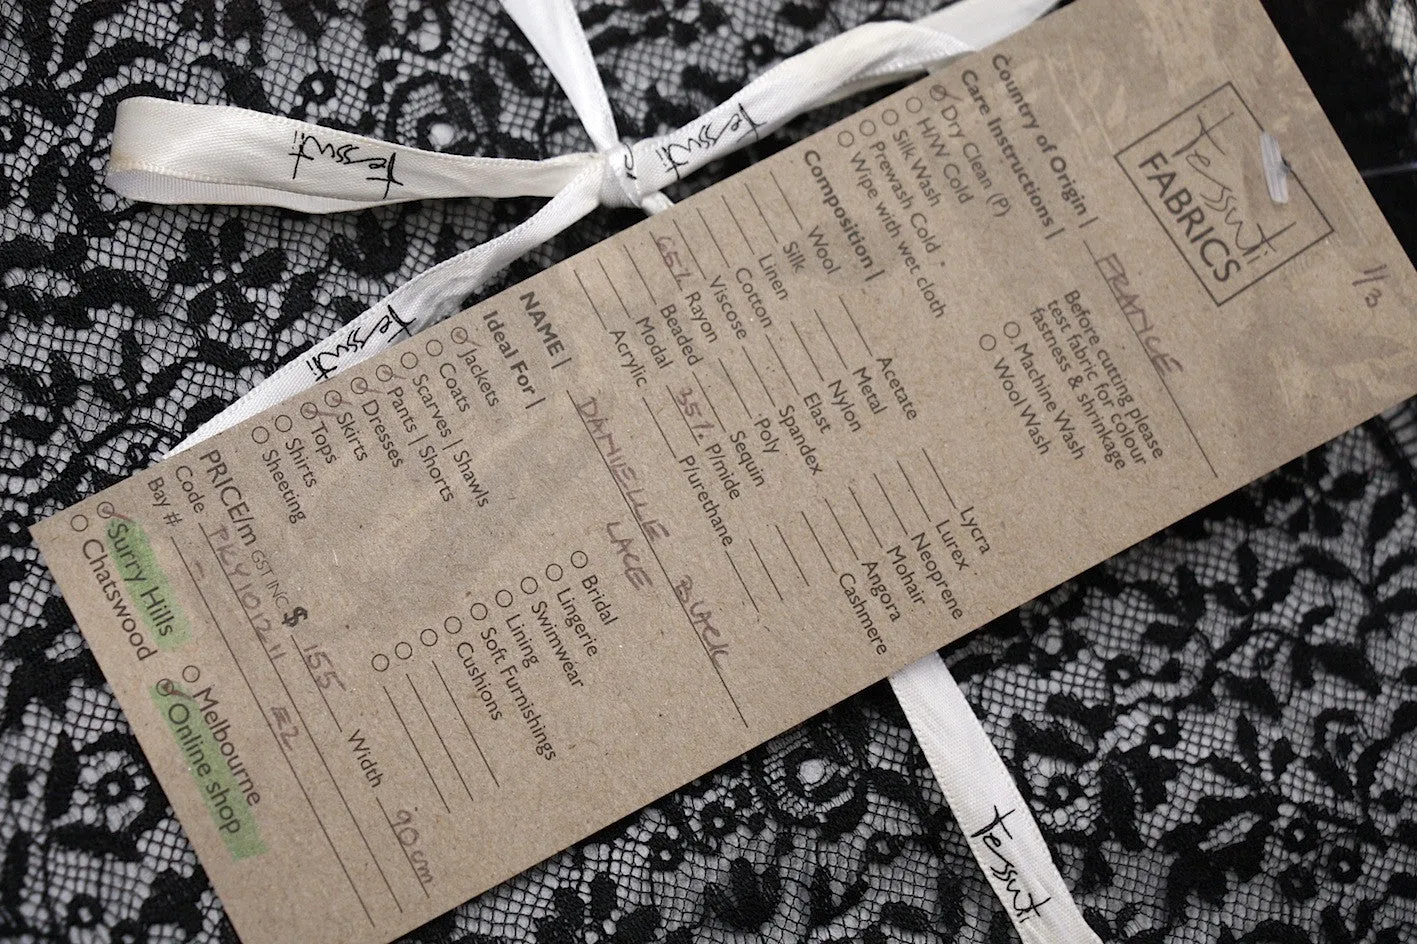 Tessuti
FABRICS
1/3
Country of Origin | FRANCE
Care Instructions |
Dry Clean (P)
H/W Cold
Silk Wash
Prewash Cold
Wipe with wet cloth
Before cutting please
test fabric for colour
fastness & shrinkage
Machine Wash
Wool Wash
Composition |
Wool
Silk
Linen
Cotton
Viscose
65% Rayon
Beaded
Modal
Acrylic
Acetate
Metal
Nylon
Elast
Spandex
Poly
Sequin
35% P/mide
P/urethane
Lycra
Lurex
Neoprene
Mohair
Angora
Cashmere
NAME | DANIELLE BLACK
LACE
Ideal For |
Jackets
Coats
Scarves | Shawls
Pants | Shorts
Dresses
Skirts
Tops
Shirts
Sheeting
Bridal
Lingerie
Swimwear
Lining
Soft Furnishings
Cushions
PRICE/m GST INC $ 155 Width 90cm
Code PKY1012H E2
Bay # -
Surry Hills
Chatswood
Melbourne
Online shop
Tessuti
Tessuti
Tessuti
Tessuti